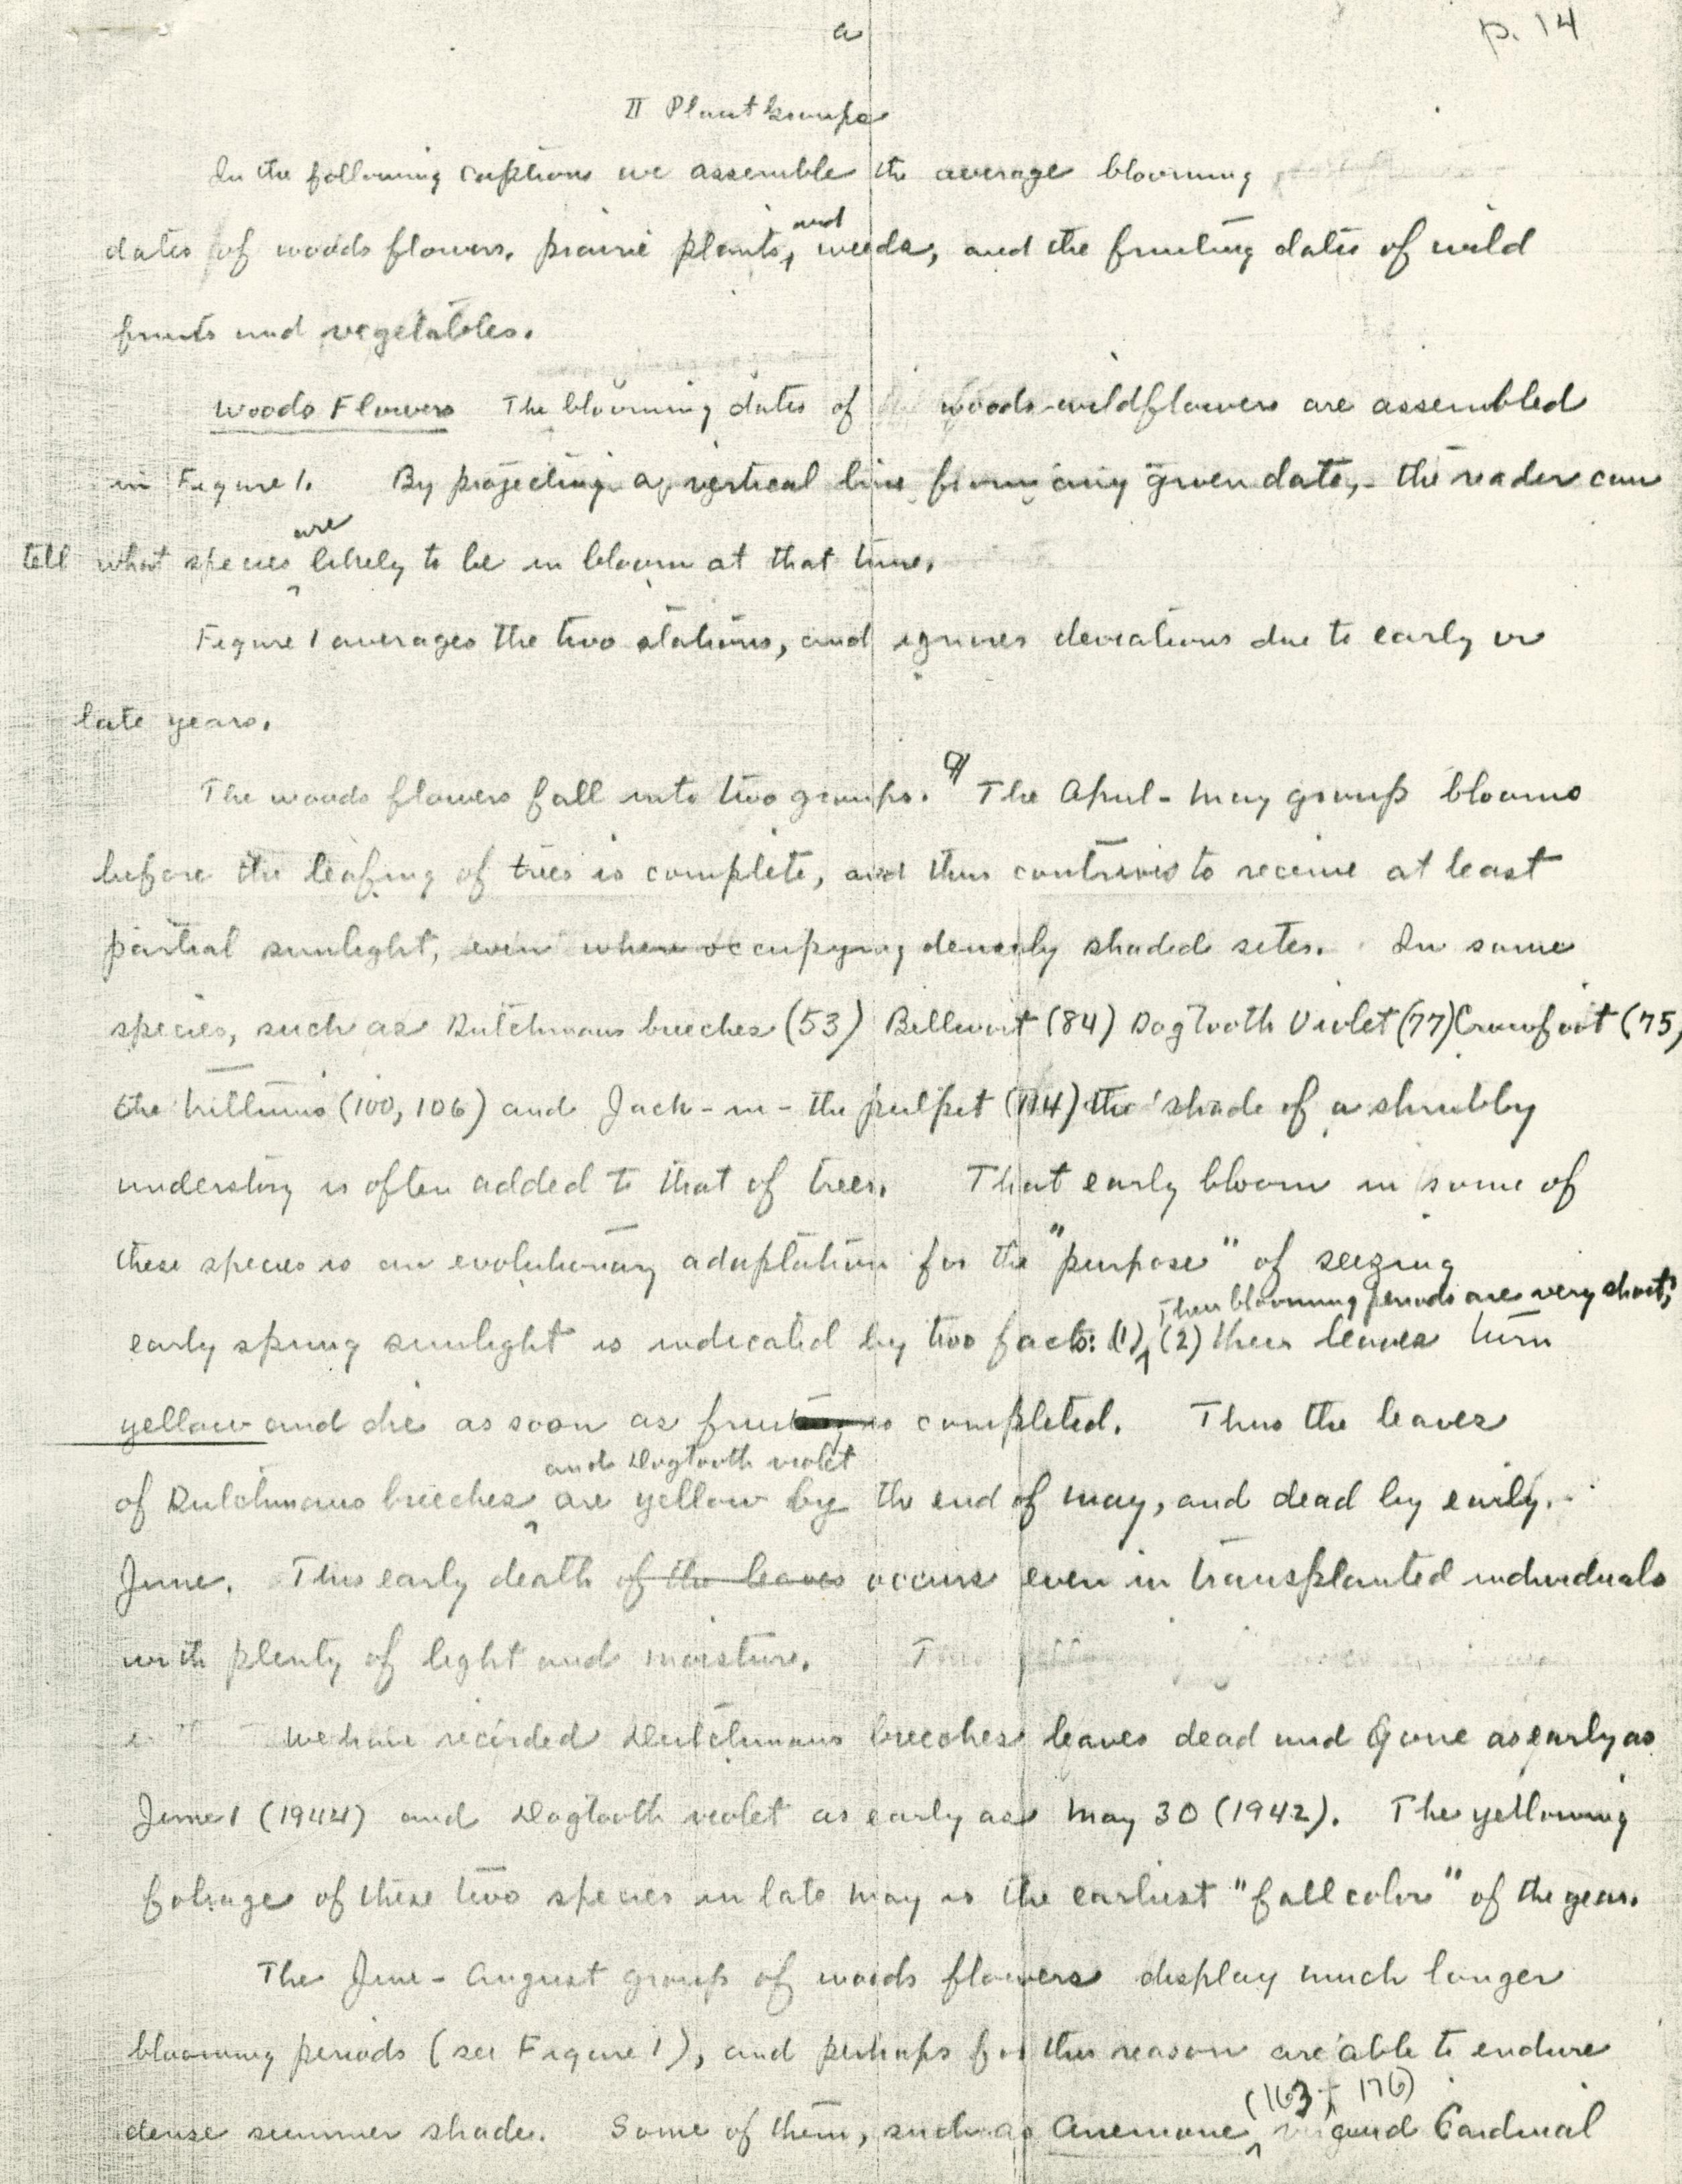 a
p. 14
II Plant Groups
In the following captions we assemble the average blooming
dates of woods flowers, prairie plants, and weeds, and the fruiting dates of wild
fruits and vegetables.
Woods Flowers The blooming dates of woods wildflowers are assembled
in Figure 1. By projecting a vertical line from any given date, the reader can
tell what species are likely to be in bloom at that time.
Figure 1 averages the two stations, and ignores deviations due to early or
late years.
The woods flowers fall into two groups. ¶ The April-May group blooms
before the leafing of trees is complete, and thus contrives to receive at least
partial sunlight, even when occupying densely shaded sites. In some
species, such as Dutchmans breeches (53) Bellwort (84) Dogtooth Violet (77) Crowfoot (75,
the trilliums (100, 106) and Jack-in-the pulpit (114) the shade of a shrubby
understory is often added to that of trees. That early bloom in some of
these species is an evolutionary adaptation for the "purpose" of seizing
Their blooming periods are very short;
early spring sunlight is indicated by two facts: (1) (2) their leaves turn
yellow and die as soon as fruit is completed. Thus the leaves
and Dogtooth violet
of Dutchmans breeches are yellow by the end of may, and dead by early
June. This early death of the leaves occurs even in transplanted individuals
with plenty of light and moisture.
We have recorded Dutchmans breeches leaves dead and gone as early as
June 1 (1944) and Dogtooth violet as early as May 30 (1942). The yellowing
foliage of these two species in late May is the earliest "fall color" of the year.
The June-August group of woods flowers display much longer
blooming periods (see Figure 1), and perhaps for this reason are able to endure
(163, 176)
dense summer shade. Some of them, such as Anemone and Cardinal